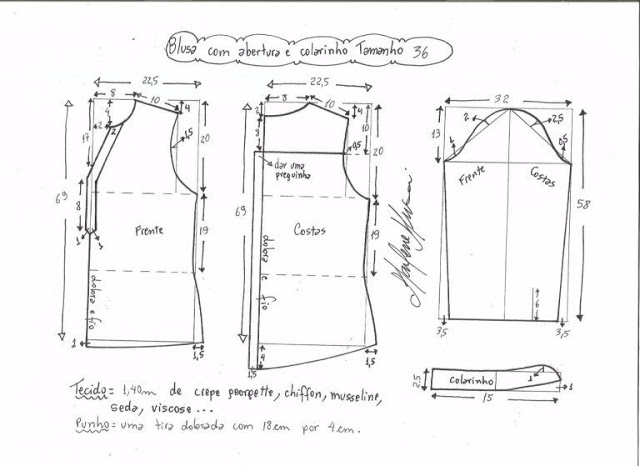 Blusa com abertura e colarinho Tamanho 36
22,5
8
10
4
4
2
2
17
1,5
20
69
8
1
1
Frente
19
dobra e fio
1
1,5
22,5
8
10
4
2
8
10
0,5
20
dar uma preguinha
69
Costas
19
dobra e fio
4
1,5
1,5
Marlene Mukai
32
13
2
2,5
1
0,5
Frente
Costas
58
6
3,5
3,5
2,5
colarinho
1
1
1
15
Tecido= 1,40m de crepe georgette, chiffon, musseline,
seda, viscose...
Punho= uma tira dobrada com 18cm por 4cm.